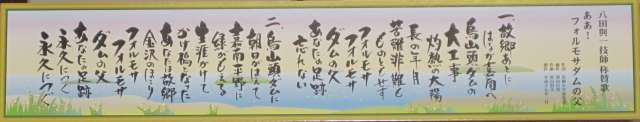 八田與一技師称賛歌
ああ!
フォルモサダムの父
一、故郷あとに
はるか嘉南へ
烏山頭ダムの
大工事
灼熱の太陽
長の年月
苦難非難も
ものともせず
フォルモサ
フォルモサ
ダムの父
あなたの足跡
忘れない
二、烏山頭ダムに
朝日がはえて
嘉南平野に
緑がもどる
生涯かけて
かけ橋となった
あなたは故郷
金沢のほこり
フォルモサ
フォルモサ
ダムの父
あなたの足跡
永久につづく
永久につづく